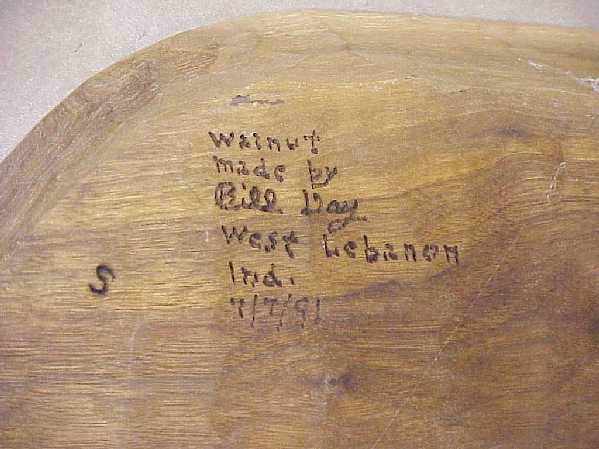 Walnut
made by
Bill Day
West Lebanon
Ind.
7/7/91
S